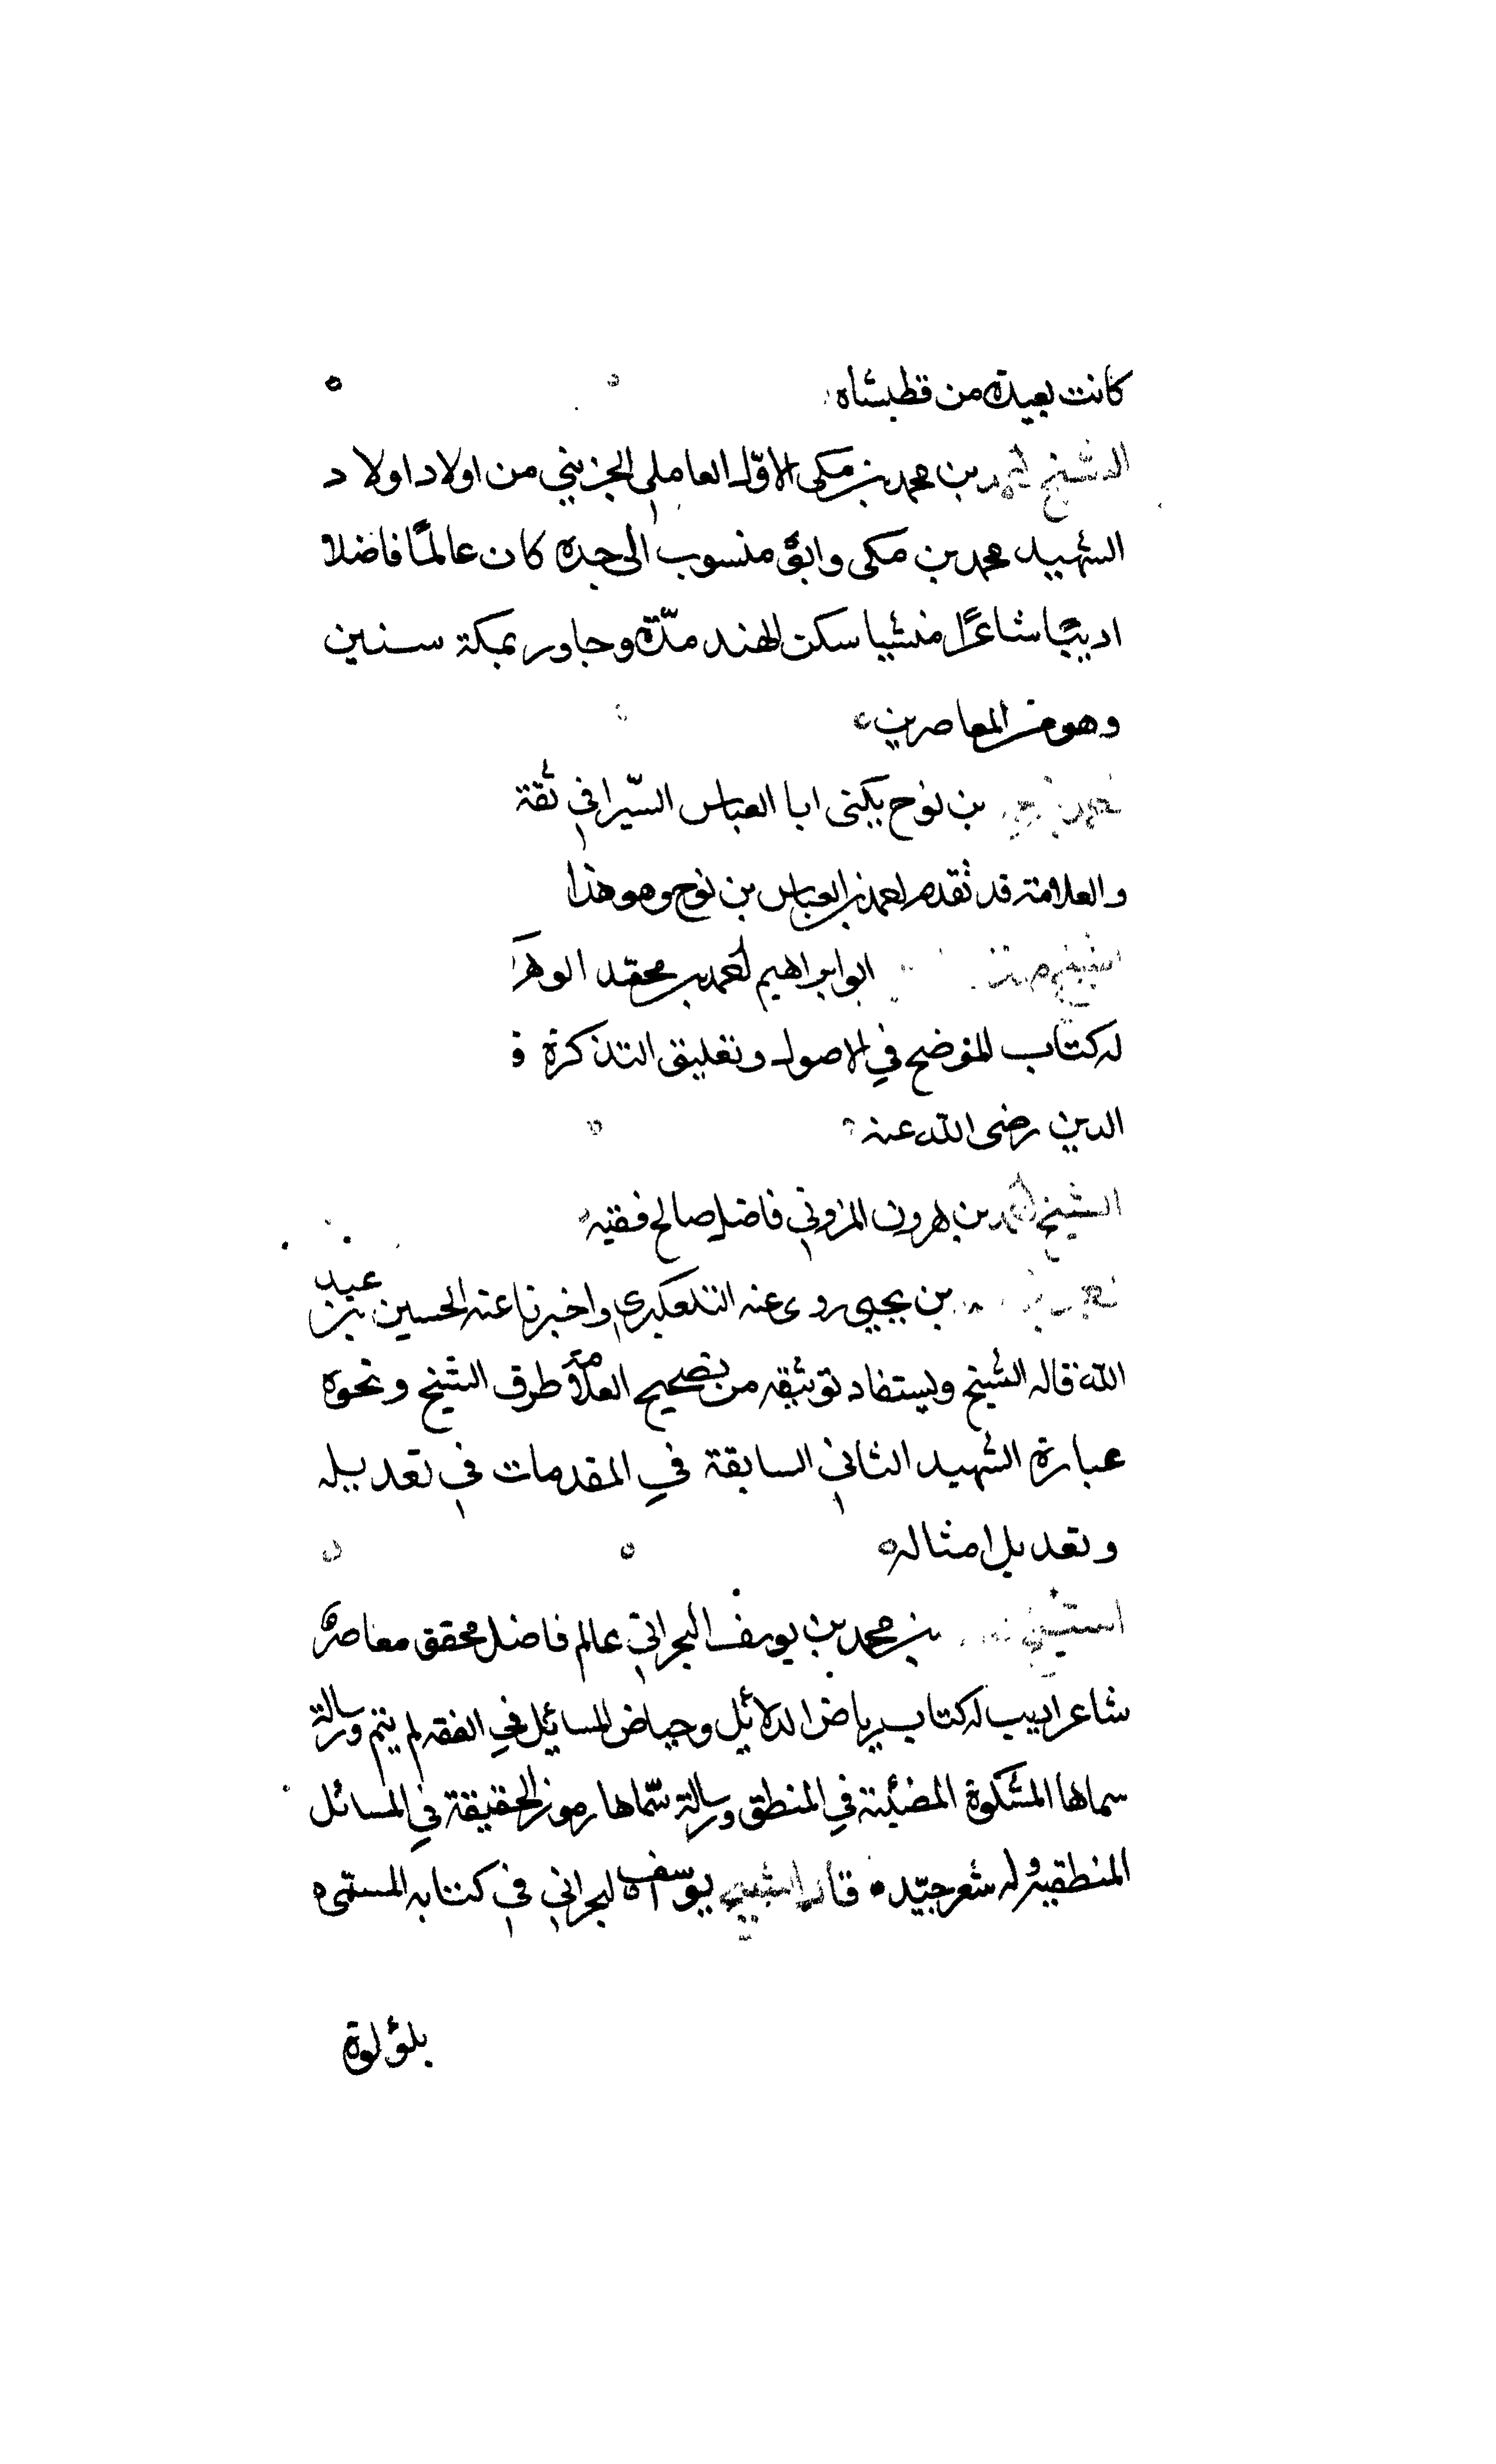 كانت بعيدة من قطبشاه
الشيخ احمد بن محمد بن مكى الاول العاملي الجزيني من اولاد اولاد
الشهيد محمد بن مكى وابوه منسوب الى جده كان عالمًا فاضلا
اديبًا شاعرًا منشيا سكن الهند مدّة وجاور بمكة سنين
وهو من المعاصرين
بن نوح يكنى ابا العباس السّيرافي ثقة
والعلامة قد تقدم احمد بن العباس بن نوح وهو هذا
الشيخ ابو ابراهيم احمد بن محمد الوهر
له كتاب الموضح في الاصول وتعليق التذكرة
الدين رضى الله عنه
الشيخ احمد بن هرون المزوني فاضل صالح فقيه
بن يحيى روى عنه التلعكبري واخبرنا عنه الحسين بن عبيد
الله قاله الشيخ ويستفاد توثيقه من تصحيح العلامة طرق الشيخ ونحوه
عبارة الشهيد الثاني السابقة في المقدمات في تعديله
وتعديل امثاله
الشيخ بن محمد بن يوسف البحراني عالم فاضل محقق معاصر
شاعر اديب له كتاب رياض الدلائل وحياض المسائل في الفقه لم يتم ورسالة
سماها المشكوة المضيئة في المنطق ورسالة سمّاها رموز الحقيقة في المسائل
المنطقية وله شعر جيّد قال الشيخ يوسف البحراني في كتابه المسمى
بلؤلؤة